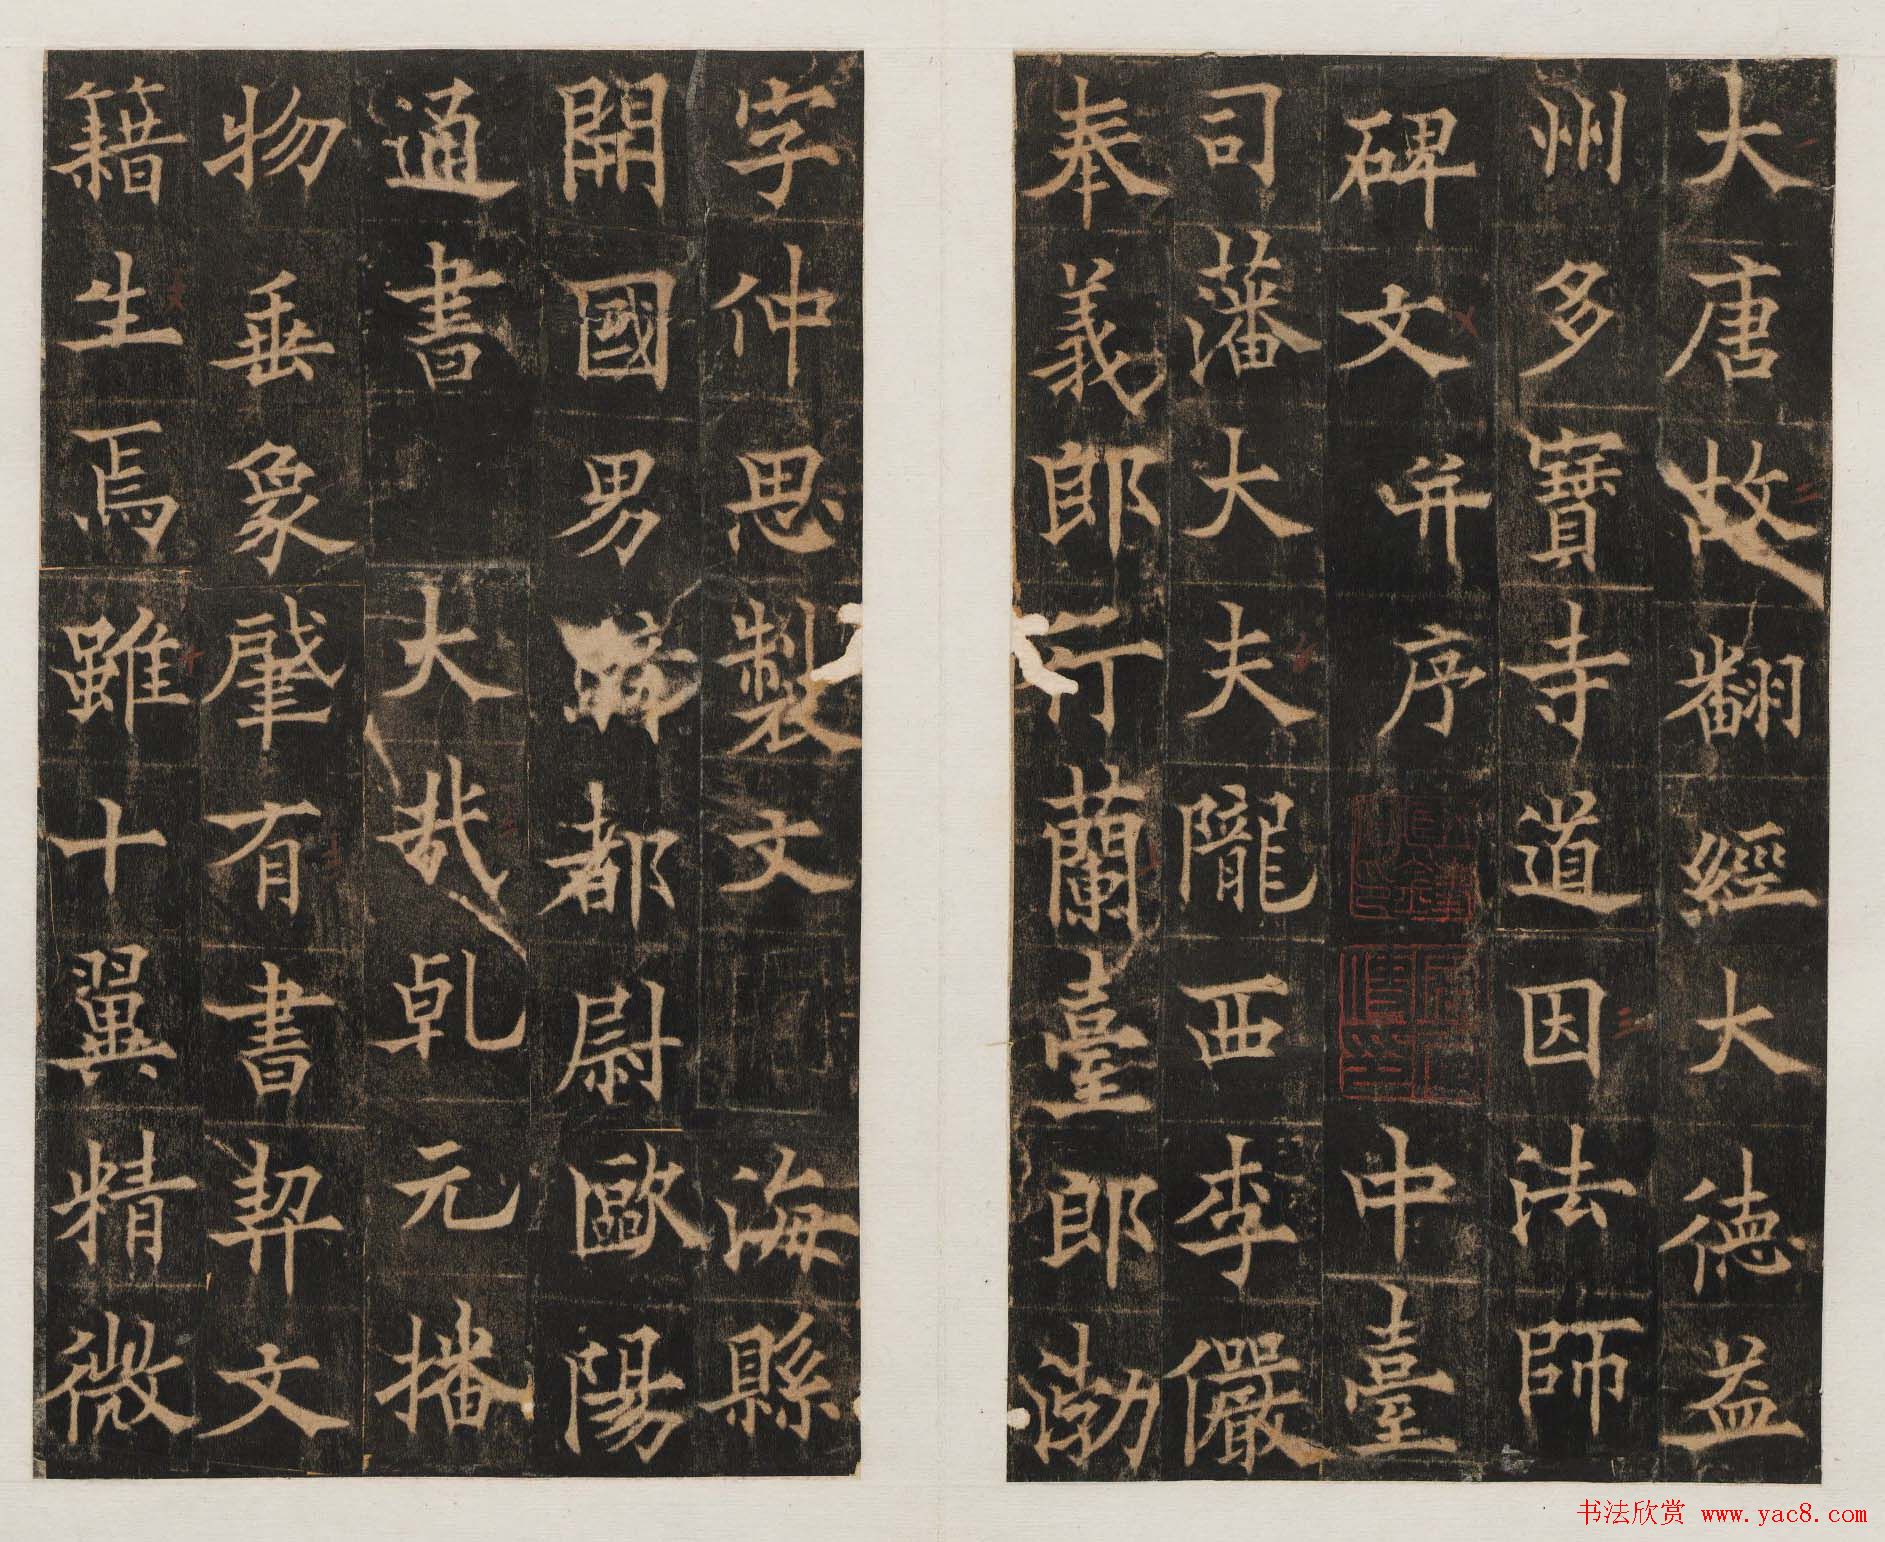 大唐故翻經大德益
州多寶寺道因法師
碑文并序中臺
司藩大夫隴西李儼
奉義郎行蘭臺郎渤
字仲思製文海縣
開國男騎都尉歐陽
通書大哉乹元播
物垂象肇有書契文
籍生焉雖十翼精微
书法欣赏 www.yac8.com